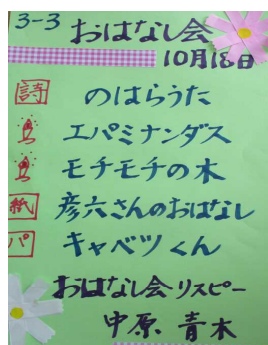 3-3 おはなし会
10月18日
詩 のはらうた
エパミナンダス
モチモチの木
紙 彦六さんのおはなし
パ キャベツくん
おはなし会リスピー
中原 青木